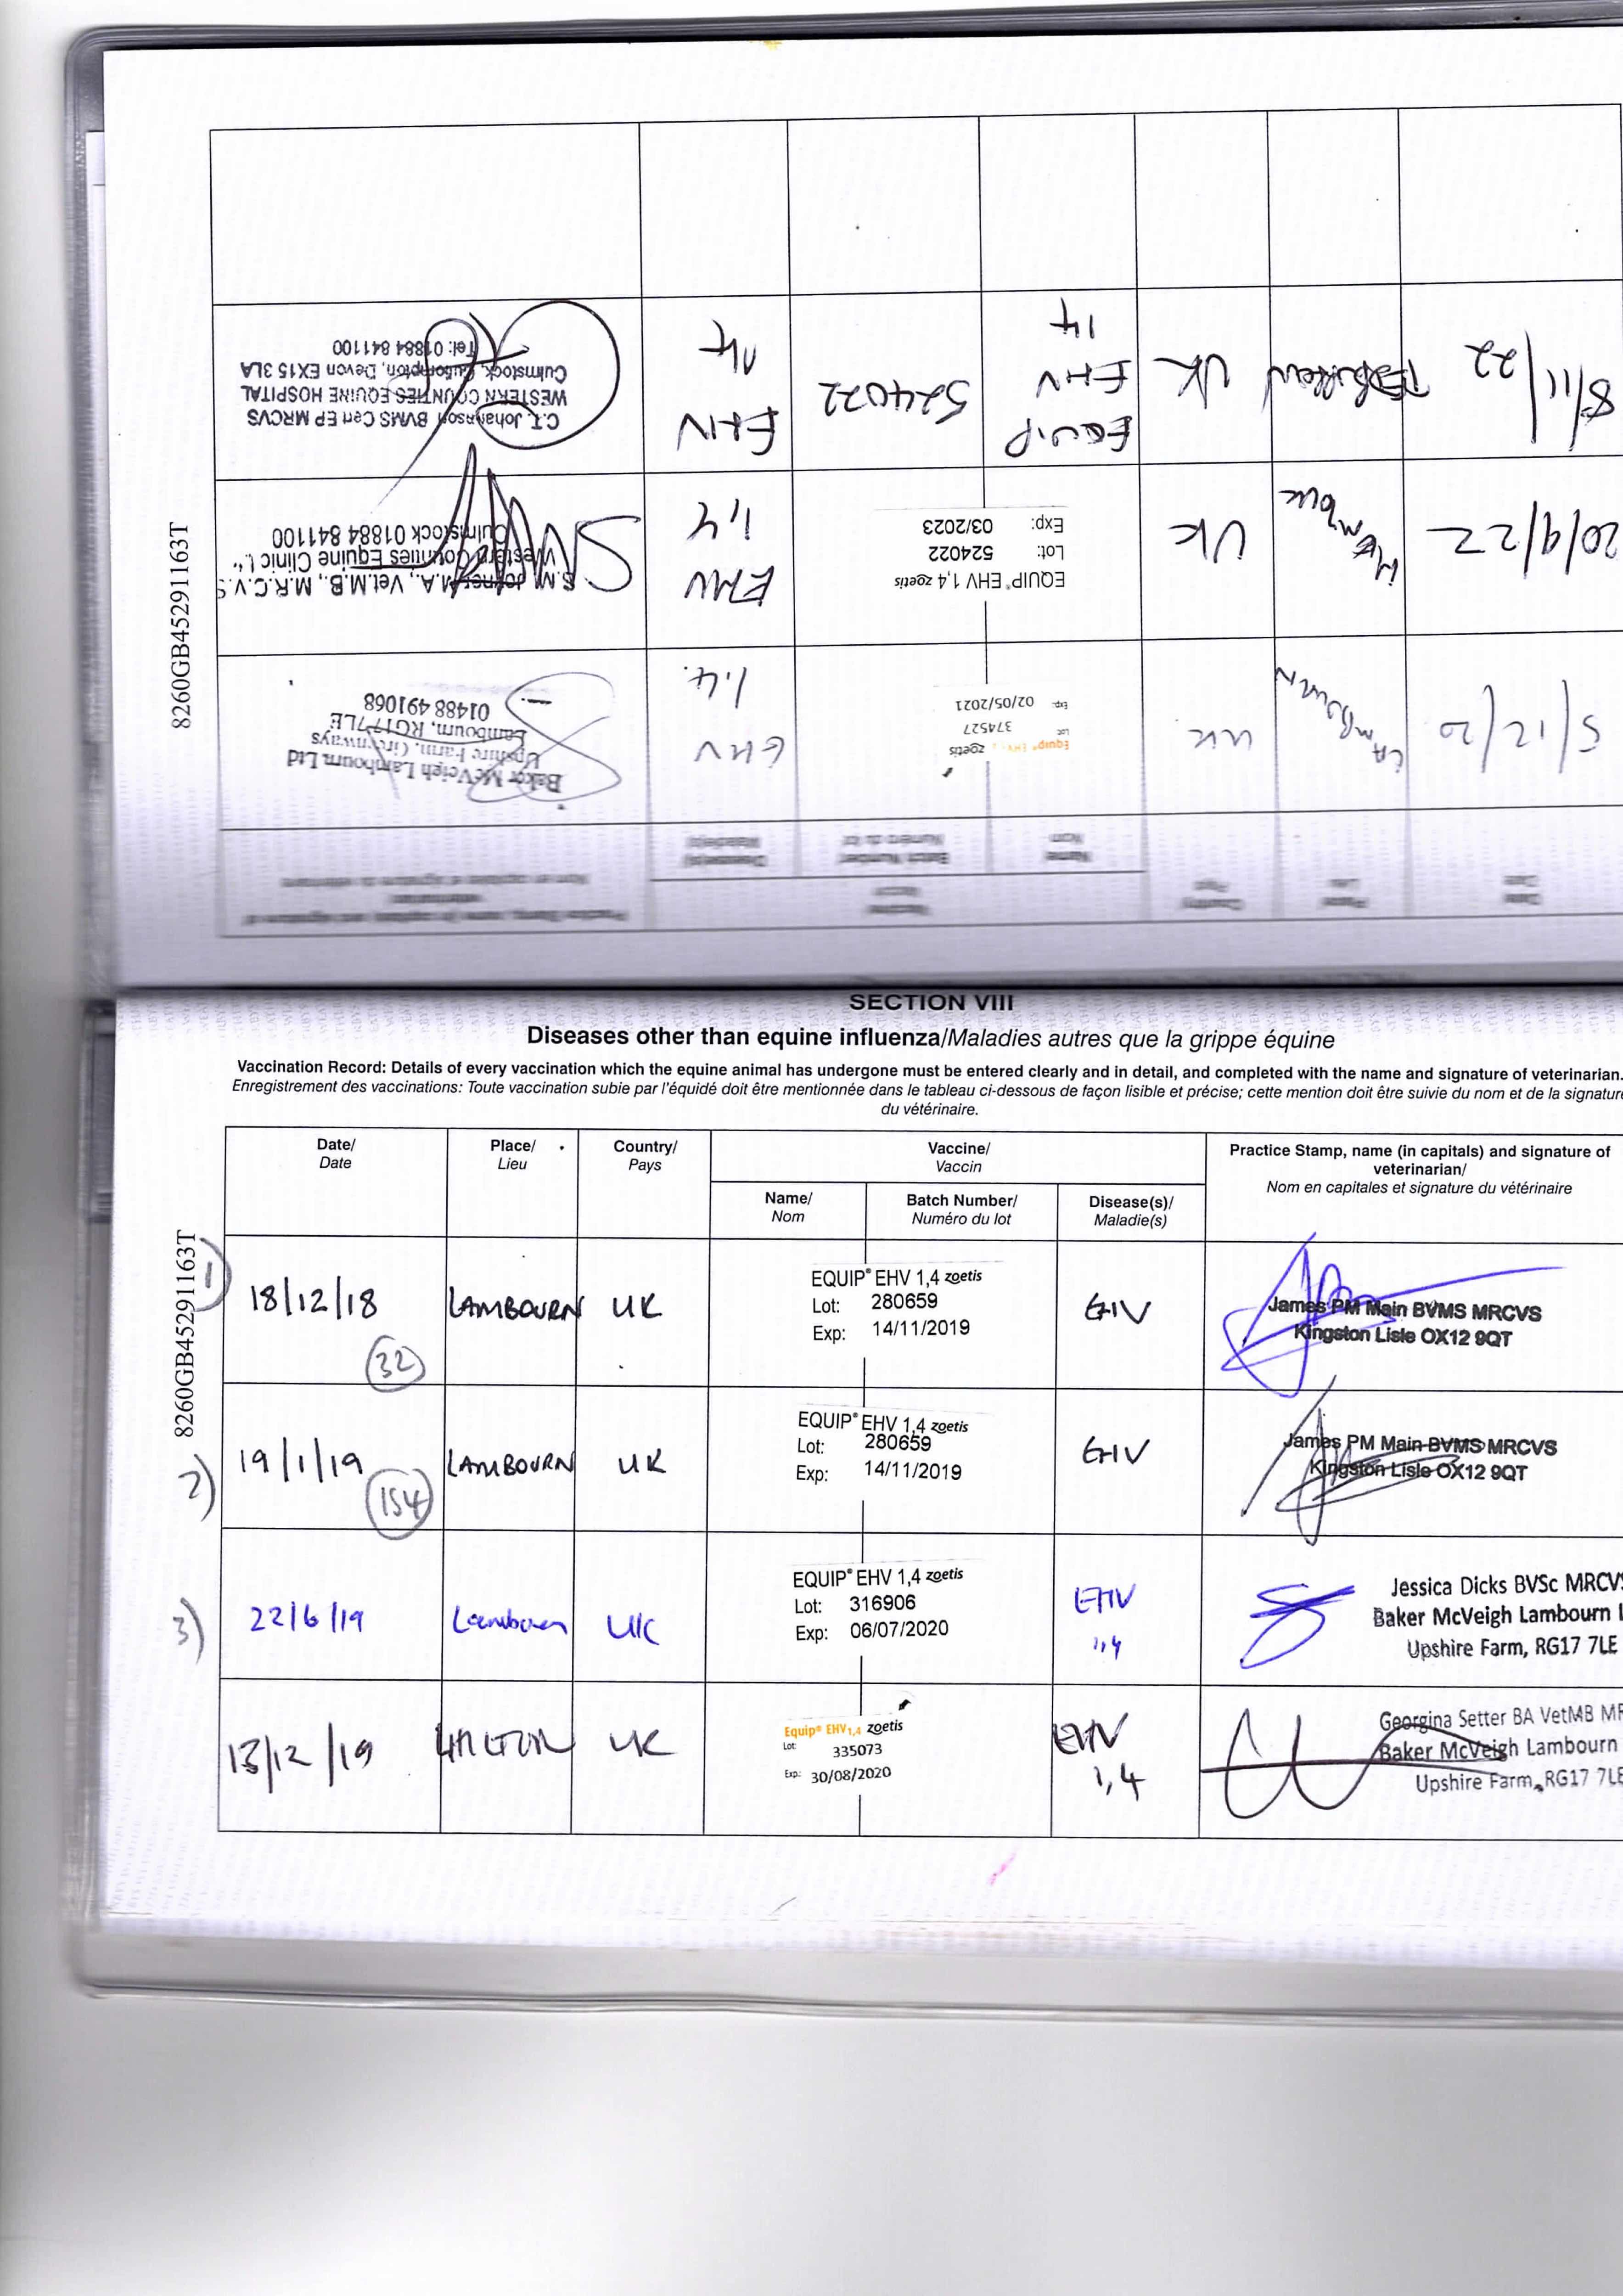 SECTION VIII
Diseases other than equine influenza/Maladies autres que la grippe équine
Vaccination Record: Details of every vaccination which the equine animal has undergone must be entered clearly and in detail, and completed with the name and signature of veterinarian.
Enregistrement des vaccinations: Toute vaccination subie par l'équidé doit être mentionnée dans le tableau ci-dessous de façon lisible et précise; cette mention doit être suivie du nom et de la signature
du vétérinaire.
Date/ Place/ Country/ Vaccine/ Practice Stamp, name (in capitals) and signature of
Date Lieu Pays Vaccin veterinarian/
Nom en capitales et signature du vétérinaire
Name/ Batch Number/ Disease(s)/
Nom Numéro du lot Maladie(s)
8260GB45291163T
1)
18/12/18 LAMBOURN UK
EQUIP® EHV 1,4 zoetis
Lot: 280659
Exp: 14/11/2019
EHV
James PM Main BVMS MRCVS
Kingston Lisle OX12 9QT
32
2)
19/1/19 LAMBOURN UK
EQUIP® EHV 1,4 zoetis
Lot: 280659
Exp: 14/11/2019
EHV
James PM Main BVMS MRCVS
Kingston Lisle OX12 9QT
154
3)
22/6/19 Lambourn UK
EQUIP® EHV 1,4 zoetis
Lot: 316906
Exp: 06/07/2020
EHV
1,4
Jessica Dicks BVSc MRCVS
Baker McVeigh Lambourn
Upshire Farm, RG17 7LE
13/12/19 UK
Equip® EHV1,4 zoetis
Lot: 335073
Exp: 30/08/2020
EHV
1,4
Georgina Setter BA VetMB
Baker McVeigh Lambourn
Upshire Farm, RG17 7LE
8260GB45291163T
Date Place Country Vaccine
Name Batch Number Disease(s)
5/12/20 LAMBOURN UK
Equip® EHV zoetis
Lot 374527
Exp: 02/05/2021
EHV
1.4.
Baker McVeigh Lambourn Ltd
Upshire Farm, Greenways
Lambourn, RG17 7LE
01488 491068
20/9/22 UK
EQUIP® EHV 1,4 zoetis
Lot: 524022
Exp: 03/2023
EHV
1,4
S.M. Joyner M.A., Vet.M.B., M.R.C.V.S
Western Counties Equine Clinic
Culmstock 01884 841100
8/11/22 UK
EQUIP
EHV
14
524022
EHV
14
C.T. Johanason BVMS Cert EP MRCVS
WESTERN COUNTIES EQUINE HOSPITAL
Culmstock, Cullompton, Devon EX15 3LA
Tel: 01884 841100